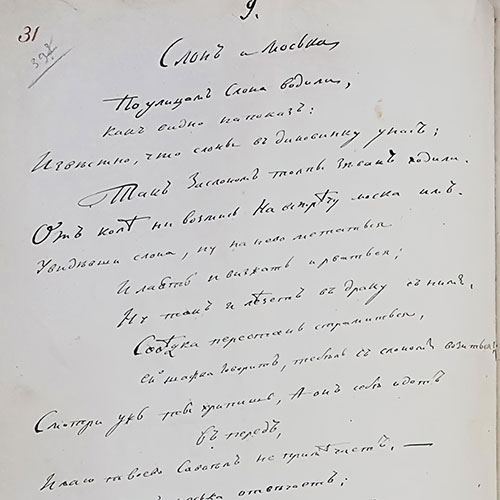 9.
31
392
Слонъ и Моська
По улицамъ Слона водили,
какъ видно на показъ:
Извѣстно, что слоны въ диковинку у насъ;
Такъ За слономъ толпы зѣвакъ ходили.
Отъ колѣ ни возмись На встрѣчу моска имъ.
Увидѣвши слона, ну на нево метаться
И лаять и визжать и рваться;
Ну такъ и лѣзетъ въ драку съ нимъ,
Сосѣдка перестань страмиться,
ей шафка говоритъ, тебѣль съ слономъ возиться
Смотри ужъ ты хрипишь, А онъ себѣ идетъ
въ передъ,
И лаю твоево Совсемъ не примѣчаетъ, —
отвѣчаетъ;